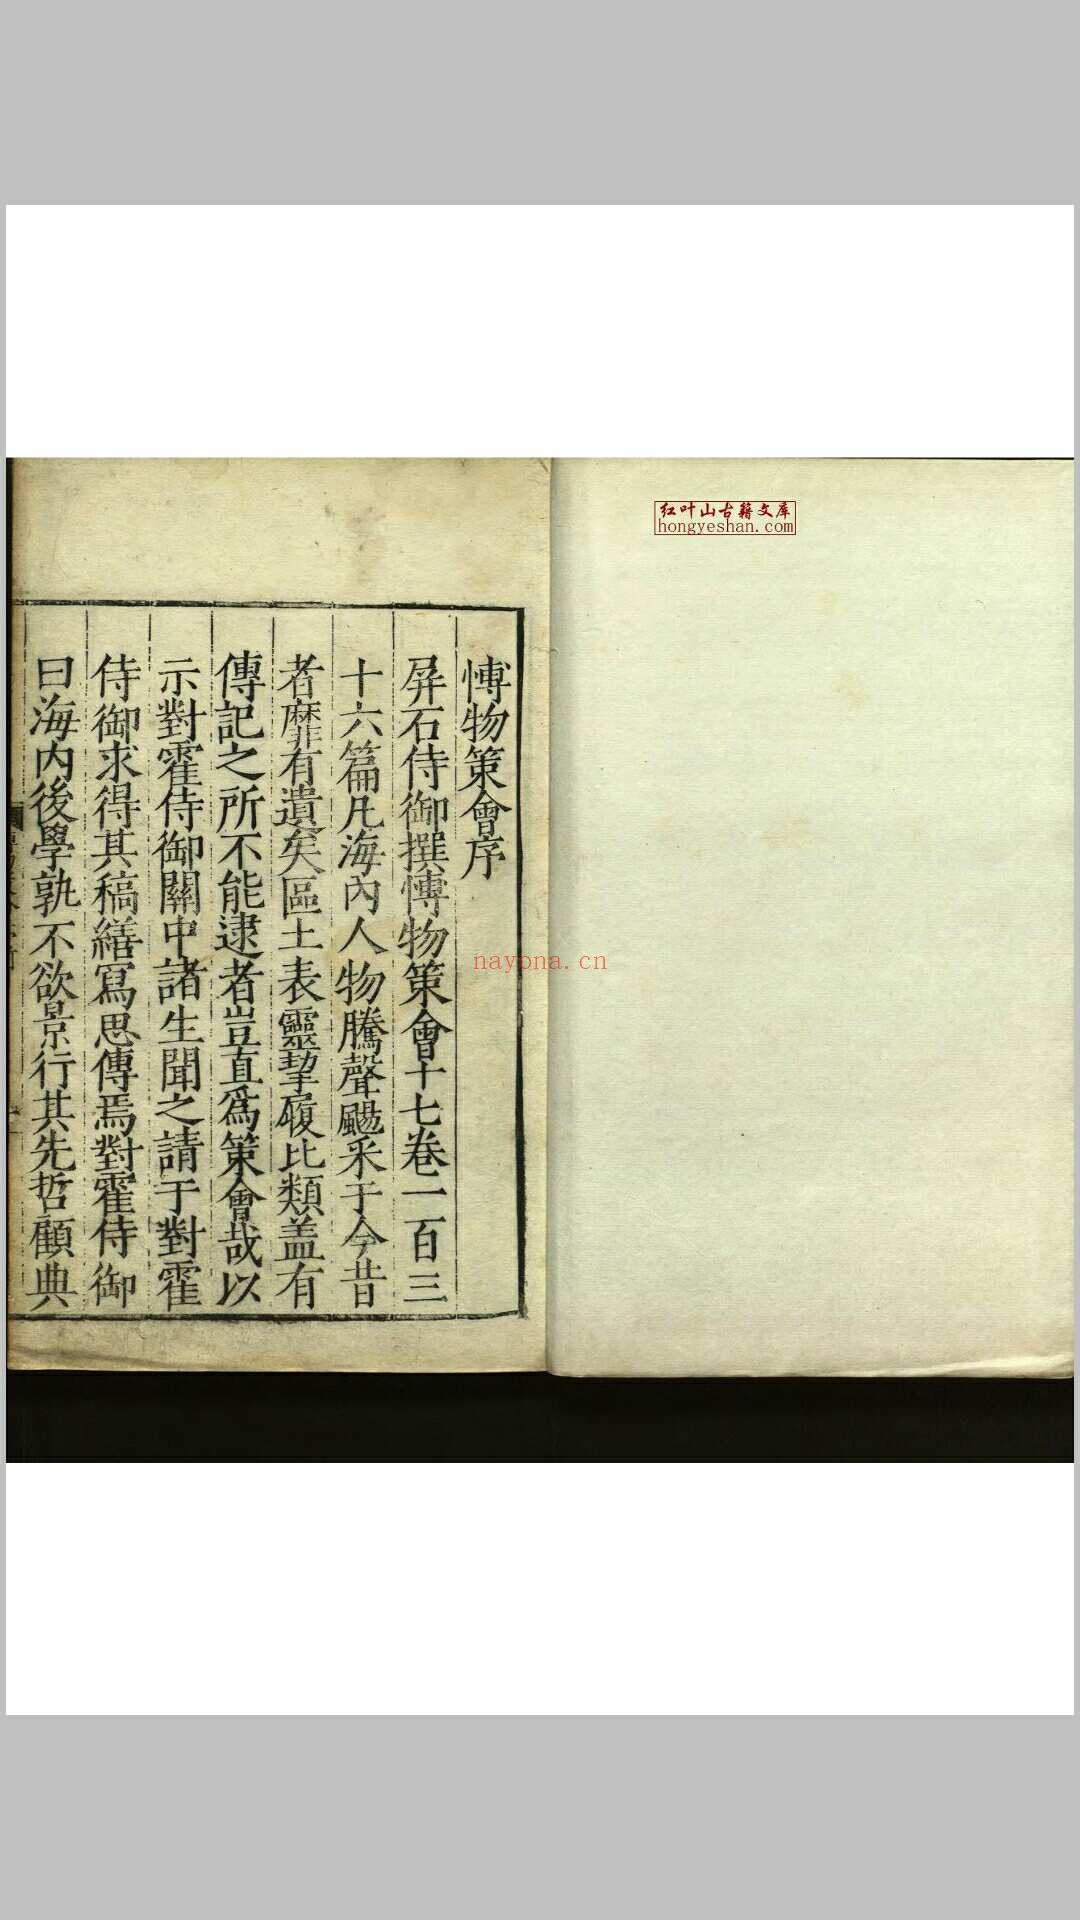 红叶山古籍文库
hongyeshan.com
nayona.cn
愽物策會序
屏石侍御撰愽物策會十七卷一百三
十六篇凡海內人物騰聲颺采于今昔
者靡有遺矣區土表靈挈履比類盖有
傳記之所不能逮者豈直爲策會哉以
示對霍侍御關中諸生聞之請于對霍
侍御求得其稿繕寫思傳焉對霍侍御
曰海内後學孰不欲景行其先哲顧典